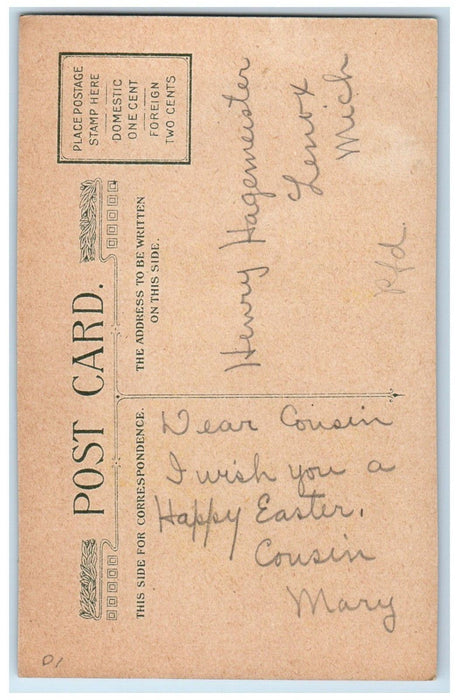 POST CARD.
PLACE POSTAGE
STAMP HERE
DOMESTIC
ONE CENT
FOREIGN
TWO CENTS
THIS SIDE FOR CORRESPONDENCE.
THE ADDRESS TO BE WRITTEN
ON THIS SIDE.
Dear Cousin
I wish you a
Happy Easter.
Cousin
Mary
Henry Hagemeister
Lenox
Mich